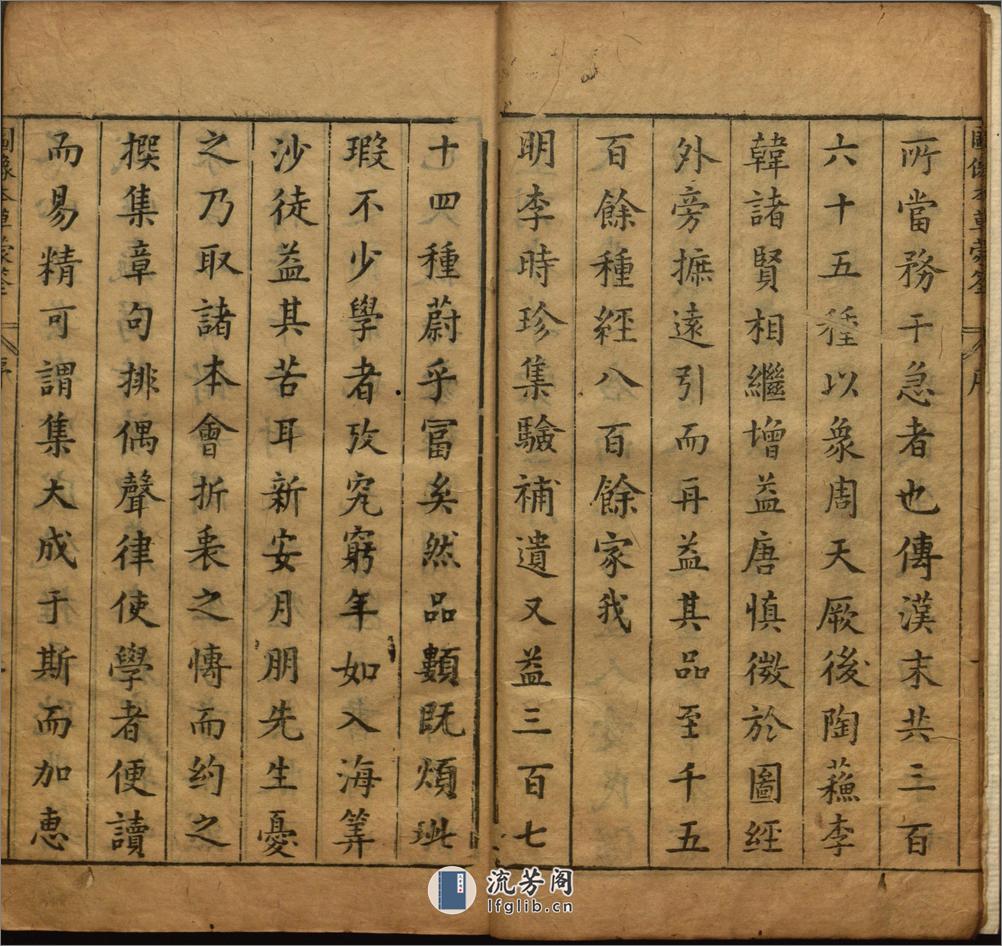 所當務于急者也傳漢末共三百
六十五種以衆周天厥後陶蘓李
韓諸賢相繼增益唐慎微於圖經
外旁摭遠引而再益其品至千五
百餘種經八百餘家我
明李時珍集驗補遺又益三百七
十四種蔚乎富矣然品類既煩玼
瑕不少學者攷究窮年如入海筭
沙徒益其苦耳新安月朋先生憂
之乃取諸本會折衷之慱而約之
撰集章句排偶聲律使學者便讀
而易精可謂集大成于斯而加惠
圖像本草蒙筌
序
流芳阁
lfglib.cn